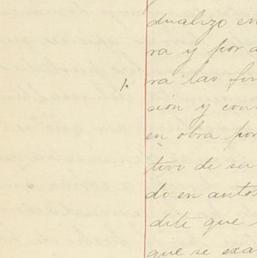 dualizo en
ra y por a
1.
ra las fir
sión y con
en obra por
tivo de su
do en autos
dite que
que se exa